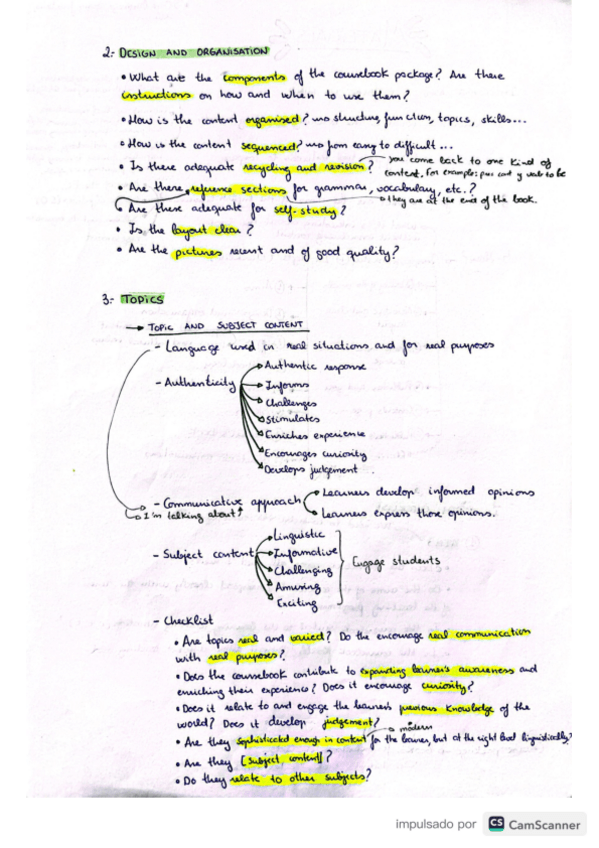 2.- DESIGN AND ORGANISATION
• What are the components of the coursebook package? Are there
instructions on how and when to use them?
• How is the content organised? structure, function, topics, skills...
• How is the content sequenced? from easy to difficult...
• Is there adequate recycling and revision? you come back to one kind of
content. For example: pres cont y verb to be
• Are there reference sections for grammar, vocabulary, etc.?
they are at the end of the book.
Are these adequate for self-study?
• Is the layout clear?
• Are the pictures recent and of good quality?
3.- TOPICS
→ TOPIC AND SUBJECT CONTENT
- Language used in real situations and for real purposes
Authentic response
- Authenticity
Informs
Challenges
Stimulates
Enriches experience
Encourages curiosity
Develops judgement
- Communicative approach
Learners develop informed opinions
I'm talking about↑
Learners express those opinions.
Linguistic
- Subject content
Informative
Challenging
Engage students
Amusing
Exciting
- Checklist
• Are topics real and varied? Do the encourage real communication
with real purposes?
• Does the coursebook contribute to expanding learner's awareness and
enriching their experience? Does it encourage curiosity?
• Does it relate to and engage the learner's previous knowledge of the
world? Does it develop judgement?
modern
• Are they sophisticated enough in content for the learner, but at the right level linguistically?
• Are they [subject, content]?
• Do they relate to other subjects?
impulsado por CS CamScanner